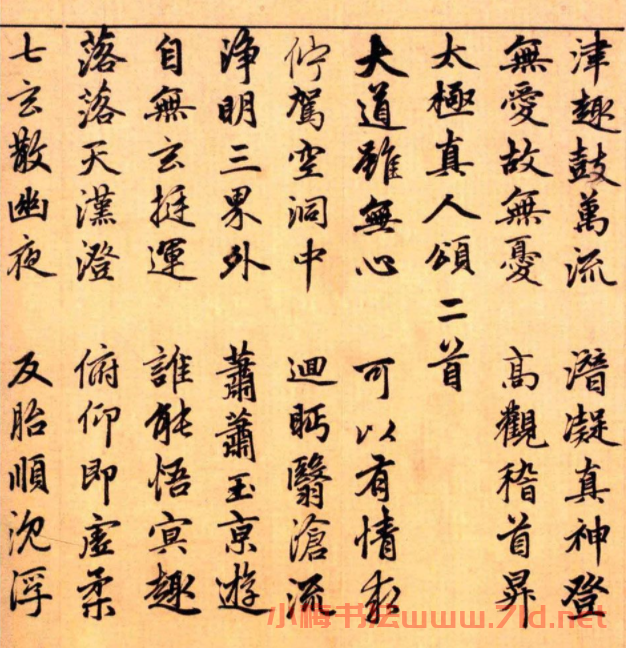 津趣鼓萬流 潛凝真神登
無愛故無憂 高觀稽首昇
太極真人頌二首
大道雖無心 可以有情求
佇駕空洞中 迴眄翳滄流
淨明三界外 蕭蕭玉京遊
自無玄挺運 誰能悟冥趣
落落天漢澄 俯仰即虛柔
七玄散幽夜 反胎順沉浮
小梅书法www.7ld.net